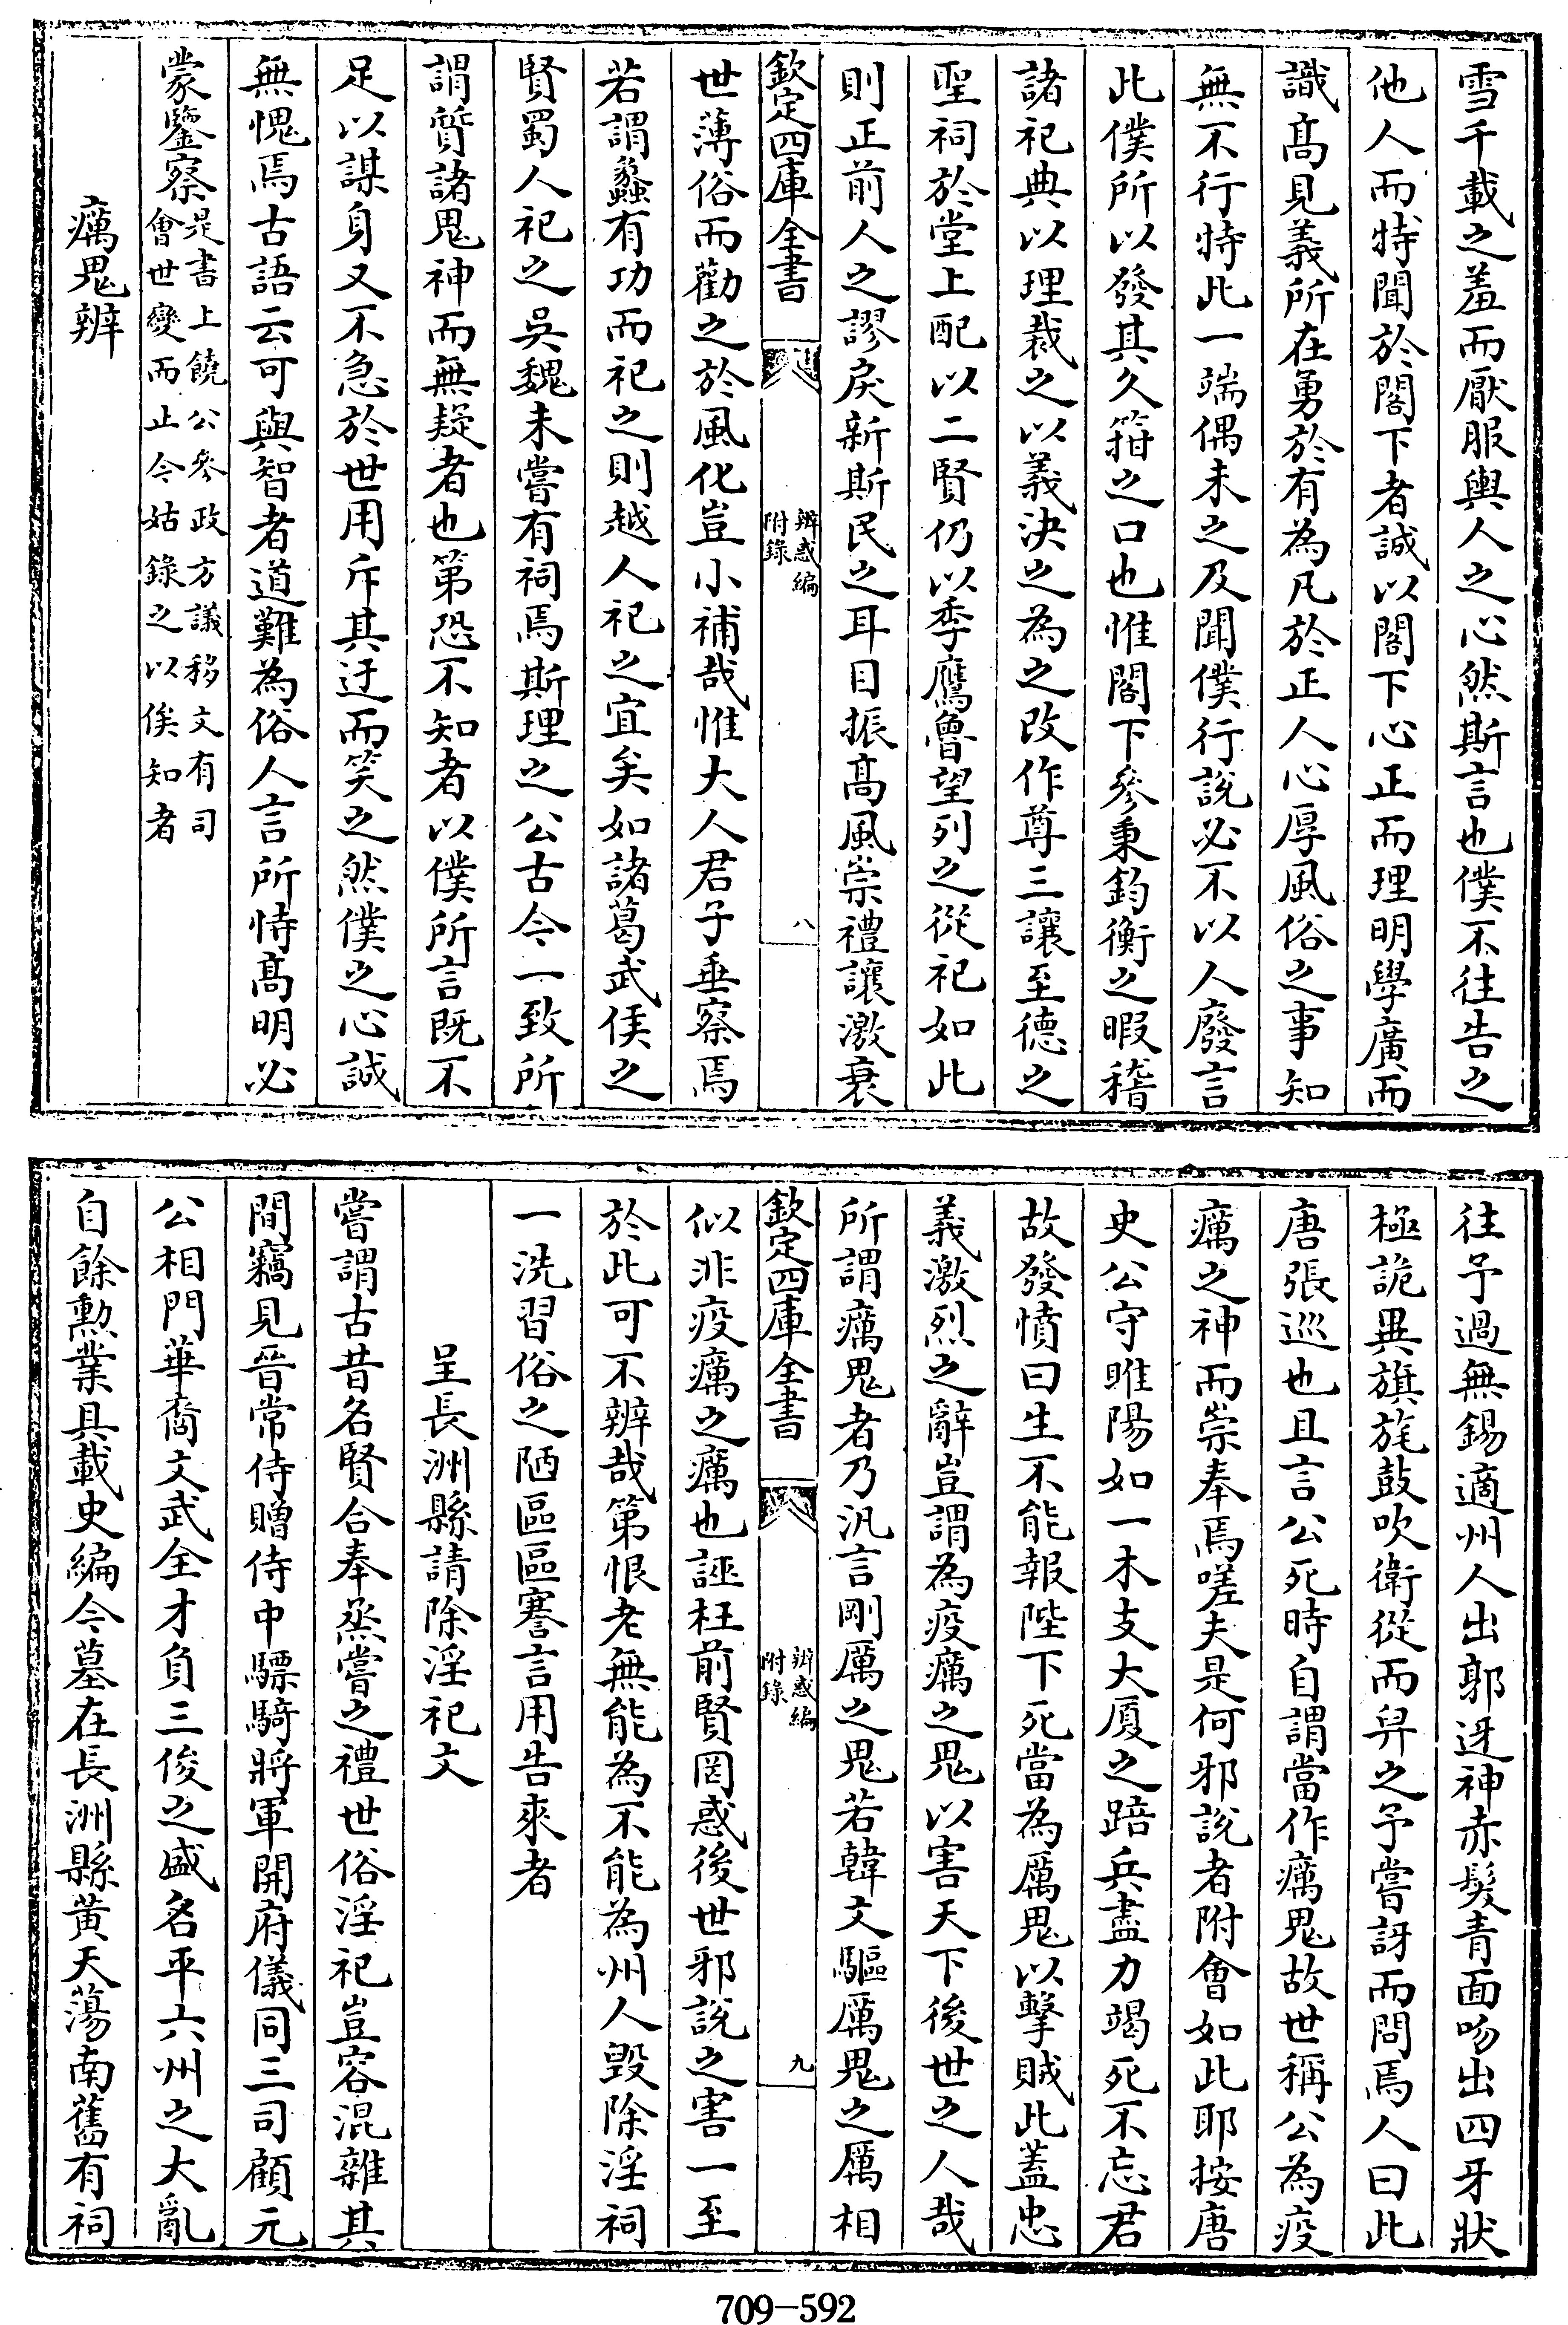 雪千載之羞而厭服輿人之心然斯言也僕不往告之
他人而特聞於閣下者誠以閣下心正而理明學廣而
識髙見義所在勇於有為凡於正人心厚風俗之事知
無不行特此一端偶未之及聞僕行說必不以人廢言
此僕所以發其久箝之口也惟閣下參秉鈞衡之暇稽
諸祀典以理裁之以義決之為之改作尊三讓至德之
聖祠於堂上配以二賢仍以季鷹魯望列之從祀如此
則正前人之謬戾新斯民之耳目振髙風崇禮讓激衰
欽定四庫全書
辨惑編
附錄
八
世薄俗而勸之於風化豈小補哉惟大人君子垂察焉
若謂蠡有功而祀之則越人祀之宜矣如諸葛武侯之
賢蜀人祀之吳魏未嘗有祠焉斯理之公古今一致所
謂質諸鬼神而無疑者也第恐不知者以僕所言既不
足以謀身又不急於世用斥其迂而笑之然僕之心誠
無愧焉古語云可與智者道難為俗人言所恃髙明必
蒙鑒察
是書上饒公參政方議移文有司
會世變而止今姑錄之以俟知者
癘鬼辨
往予過無錫適州人出郭迓神赤髮青面吻出四牙狀
極詭異旗旄鼓吹衛從而舁之予嘗訝而問焉人曰此
唐張巡也且言公死時自謂當作癘鬼故世稱公為疫
癘之神而崇奉焉嗟夫是何邪說者附會如此耶按唐
史公守睢陽如一木支大厦之踣兵盡力竭死不忘君
故發憤曰生不能報陛下死當為厲鬼以擊賊此蓋忠
義激烈之辭豈謂為疫癘之鬼以害天下後世之人哉
所謂癘鬼者乃汎言剛厲之鬼若韓文驅厲鬼之厲相
欽定四庫全書
辨惑編
附錄
九
似非疫癘之癘也誣枉前賢罔惑後世邪說之害一至
於此可不辨哉第恨老無能為不能為州人毀除淫祠
一洗習俗之陋區區謇言用告來者
呈長洲縣請除淫祀文
嘗謂古昔名賢合奉烝嘗之禮世俗淫祀豈容混雜其
間竊見晉常侍贈侍中驃騎將軍開府儀同三司顧元
公相門華裔文武全才負三俊之盛名平六州之大亂
自餘勲業具載史編今墓在長洲縣黄天蕩南舊有祠
709-592